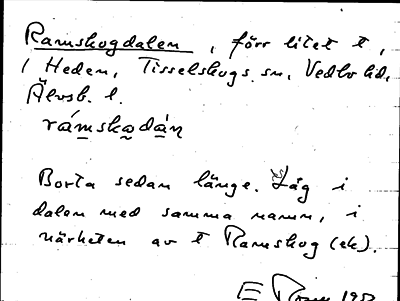 Ramskogdalen, förr litet t,
i Heden, Tisselskogs sn, Vedbo hd,
Älvsb. l.
rámskọdán
Borta sedan länge. Låg i
dalen med samma namn, i
närheten av t Ramskog (ek).
E